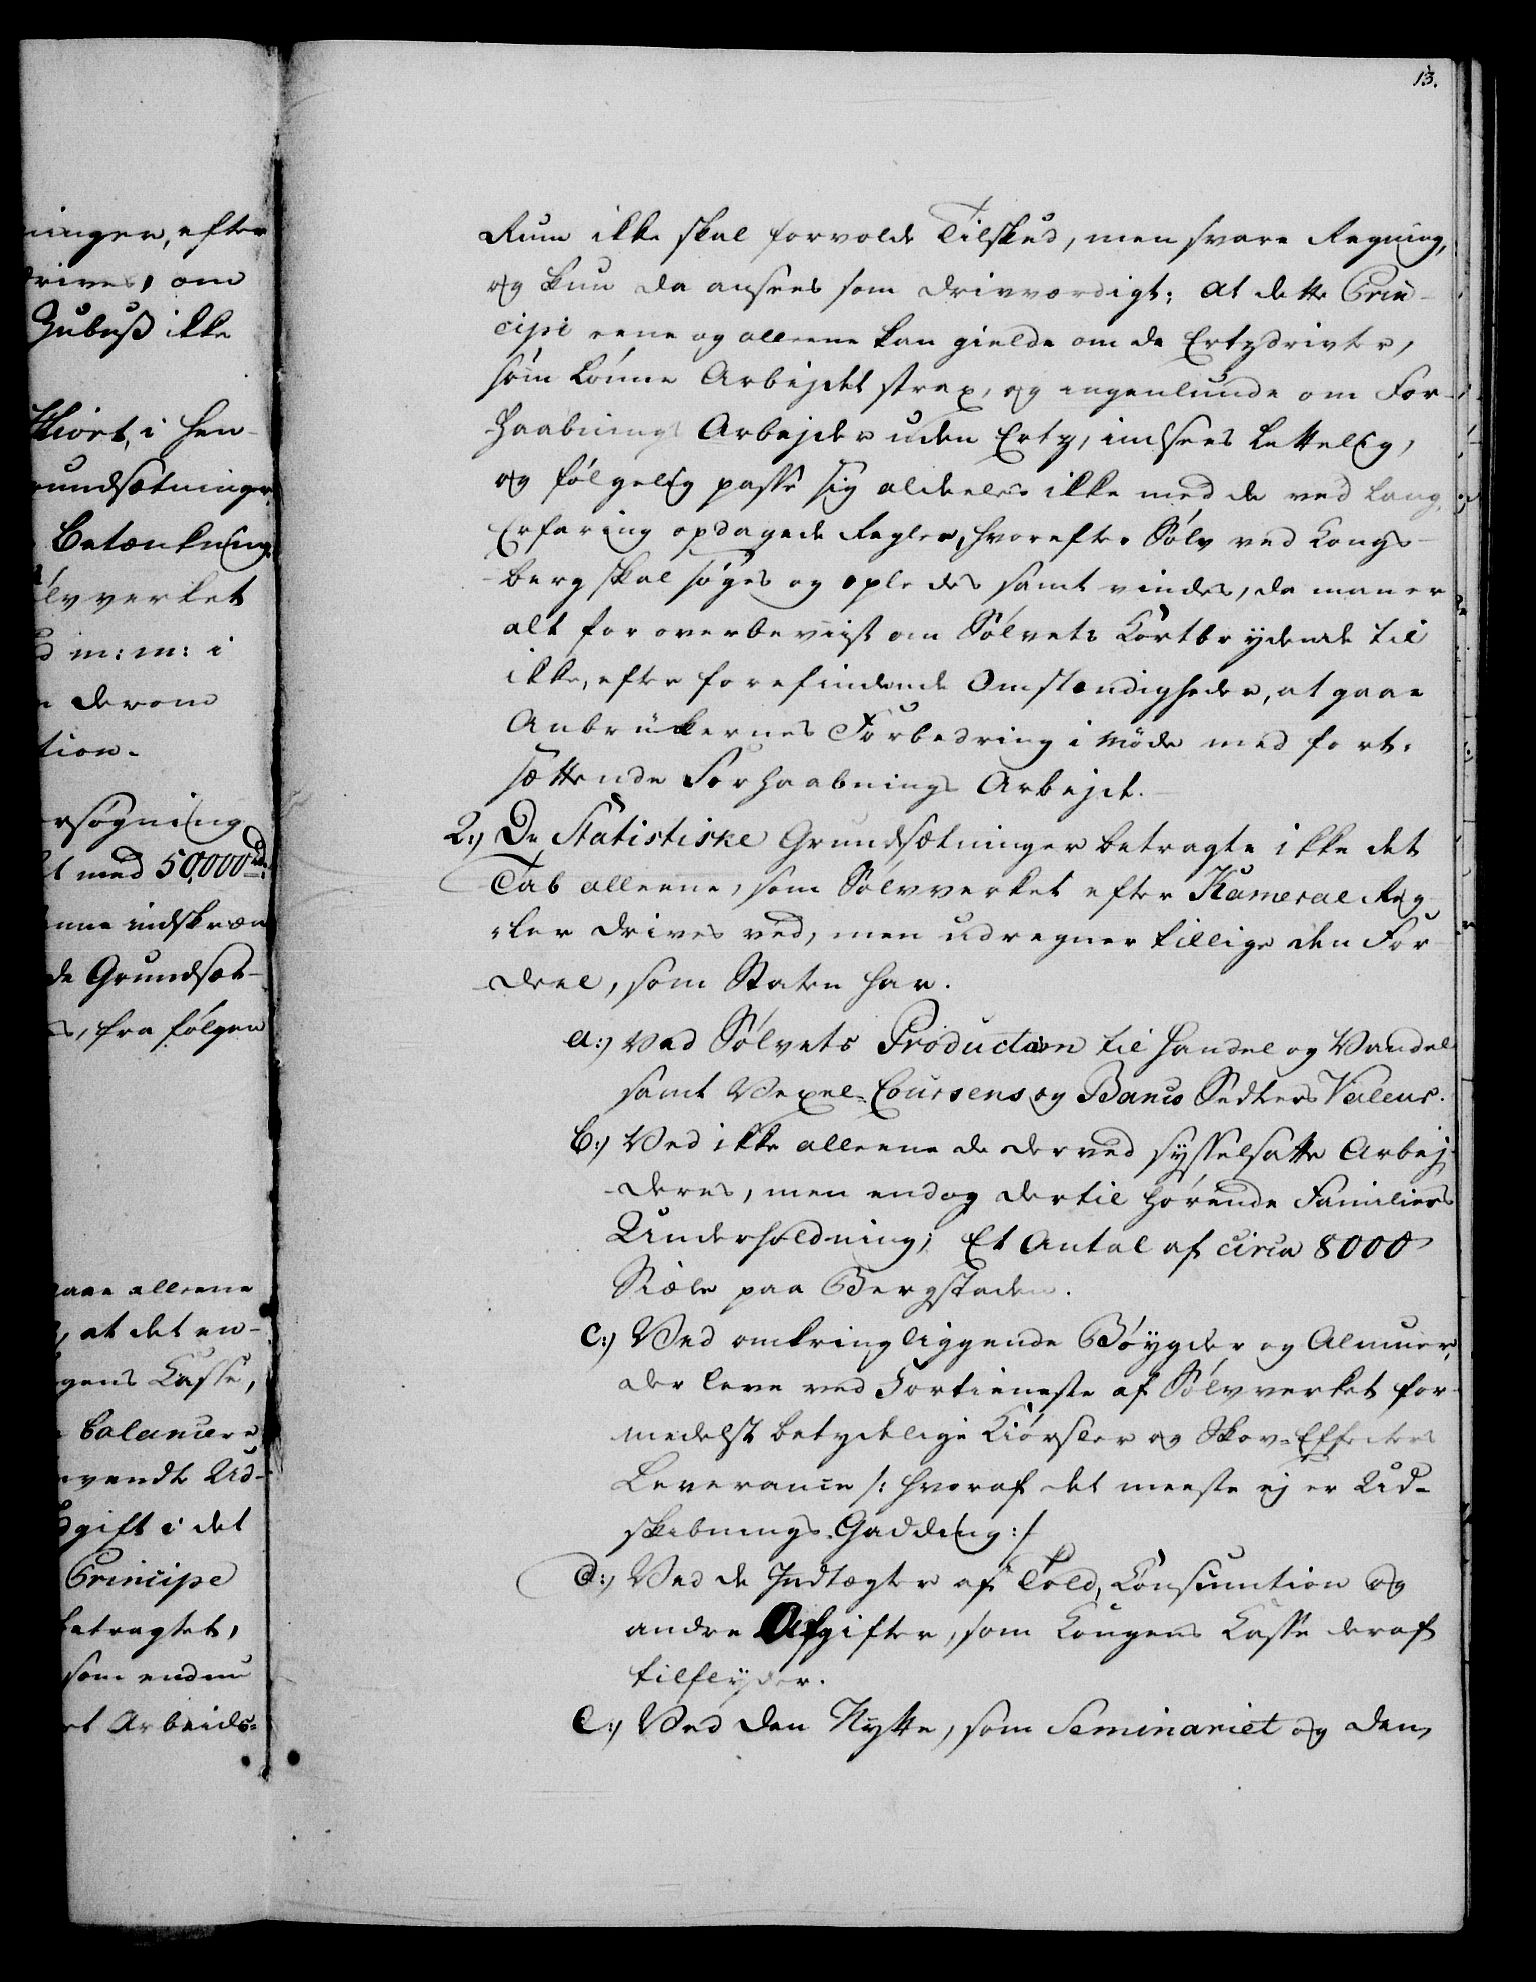 13.
ninger, efter
drives, om
Zubuß ikke
i Hen-
rundsætninger
Betænkning
ølvverket
m: m: i
derom
tion.
rsøgning
t med 50,000 rdr:
enne indskræn
de Grundsæt-
s, fra følgen
gaae alleene
, at det en-
gens Casse,
balancere
nvendte Ud-
dgift i det
Principe
betragtet,
som endnu
et Arbeids-
Rum ikke skal forvolde Tilskud, men svare Regning,
og kun da ansees som drivværdigt; at dette Prin-
cipi eene og alleene kan gielde om de Ertzdrivter,
som lønne Arbejdet strax, og ingenlunde om For-
haabnings Arbejder uden Ertz, indsees lettelig,
og følgelig passe sig aldeeles ikke med de ved lang
Erfaring opdagede Regler, hvorefter Sølv ved Kongs-
berg skal søges og opledes samt vindes, da man er
alt for overbeviist om Sølvets Kortbrydende til
ikke, efter forefindende Omstændigheder, at gaae
Anbrükernes Forbedring i Møde med fort-
sættende Forhaabnings Arbejde.
2:) De Statistiske Grundsætninger betragte ikke det
Tab alleene, som Sølvverket efter Kameral Reg-
ler drives ved, men udregner tillige den For-
deel, som Staten har.
a:) Ved Sølvets Production til Handel og Vandel
samt Vexel-Coursens og Banco Sedlers Valeur.
b:) Ved ikke alleene de derved sysselsatte Arbej-
deres, men endog dertil hørende Familiers
Underholdning; Et Antal af circa 8000
Siæle paa Bergstaden.
c:) Ved omkringliggende Bøygder og Almuer,
der leve ved Fortieneste af Sølvverket for-
medelst betydelige Kiørsler og Skov-Effecters
Leverance /: hvoraf det meeste ej er Ud-
skibnings Gadding :/
d:) Ved de Indtægter af Told, Consumtion og
andre Afgifter, som Kongens Kasse deraf
tilflyder.
e:) Ved den Nytte, som Seminariet og den